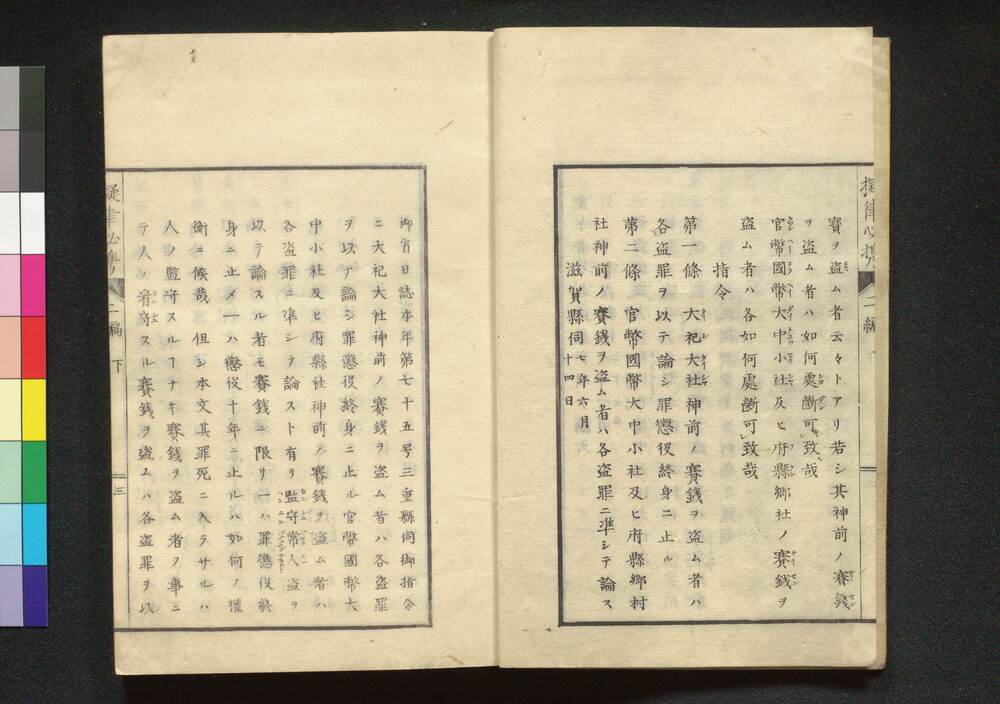 擬律必携 二編
寳ヲ盗ム者云々トアリ若シ其神前ノ賽錢
ヲ盗ム者ハ如何處斷可致哉
官幣國幣大中小社及ヒ府縣郷社ノ賽錢ヲ
盗ム者ハ各如何處斷可致哉
指令
第一條 大祀大社神前ノ賽錢ヲ盗ム者ハ
各盗罪ヲ以テ論シ罪懲役終身ニ止ル
第二條 官幣國幣大中小社及ヒ府縣郷村
社神前ノ賽錢ヲ盗ム者ハ各盗罪ニ準シテ論ス
滋賀縣伺 七年六月十四日
御省日誌本年第七十五号三重縣伺御指令
ニ大祀大社神前ノ賽錢ヲ盗ム者ハ各盗罪
ヲ以テ論シ罪懲役終身ニ止ル官幣國幣大
中小社及ヒ府縣社神前ノ賽錢ヲ盗ム者ハ
各盗罪ニ準シテ論スト有リ監守常人盗ヲ
以テ論スル者モ賽錢ニ限リ一ハ罪懲役終
身ニ止メ一ハ懲役十年ニ止ルハ如何ノ權
衡ニ候哉 但シ本文其罪死ニ入ラサルハ
人ノ監守スルヿナキ賽錢ヲ盗ム者ヲ事ニ
テ人ノ看守スル賽錢ヲ盗ムハ各盗罪ヲ以
擬律必携 二編 下 三